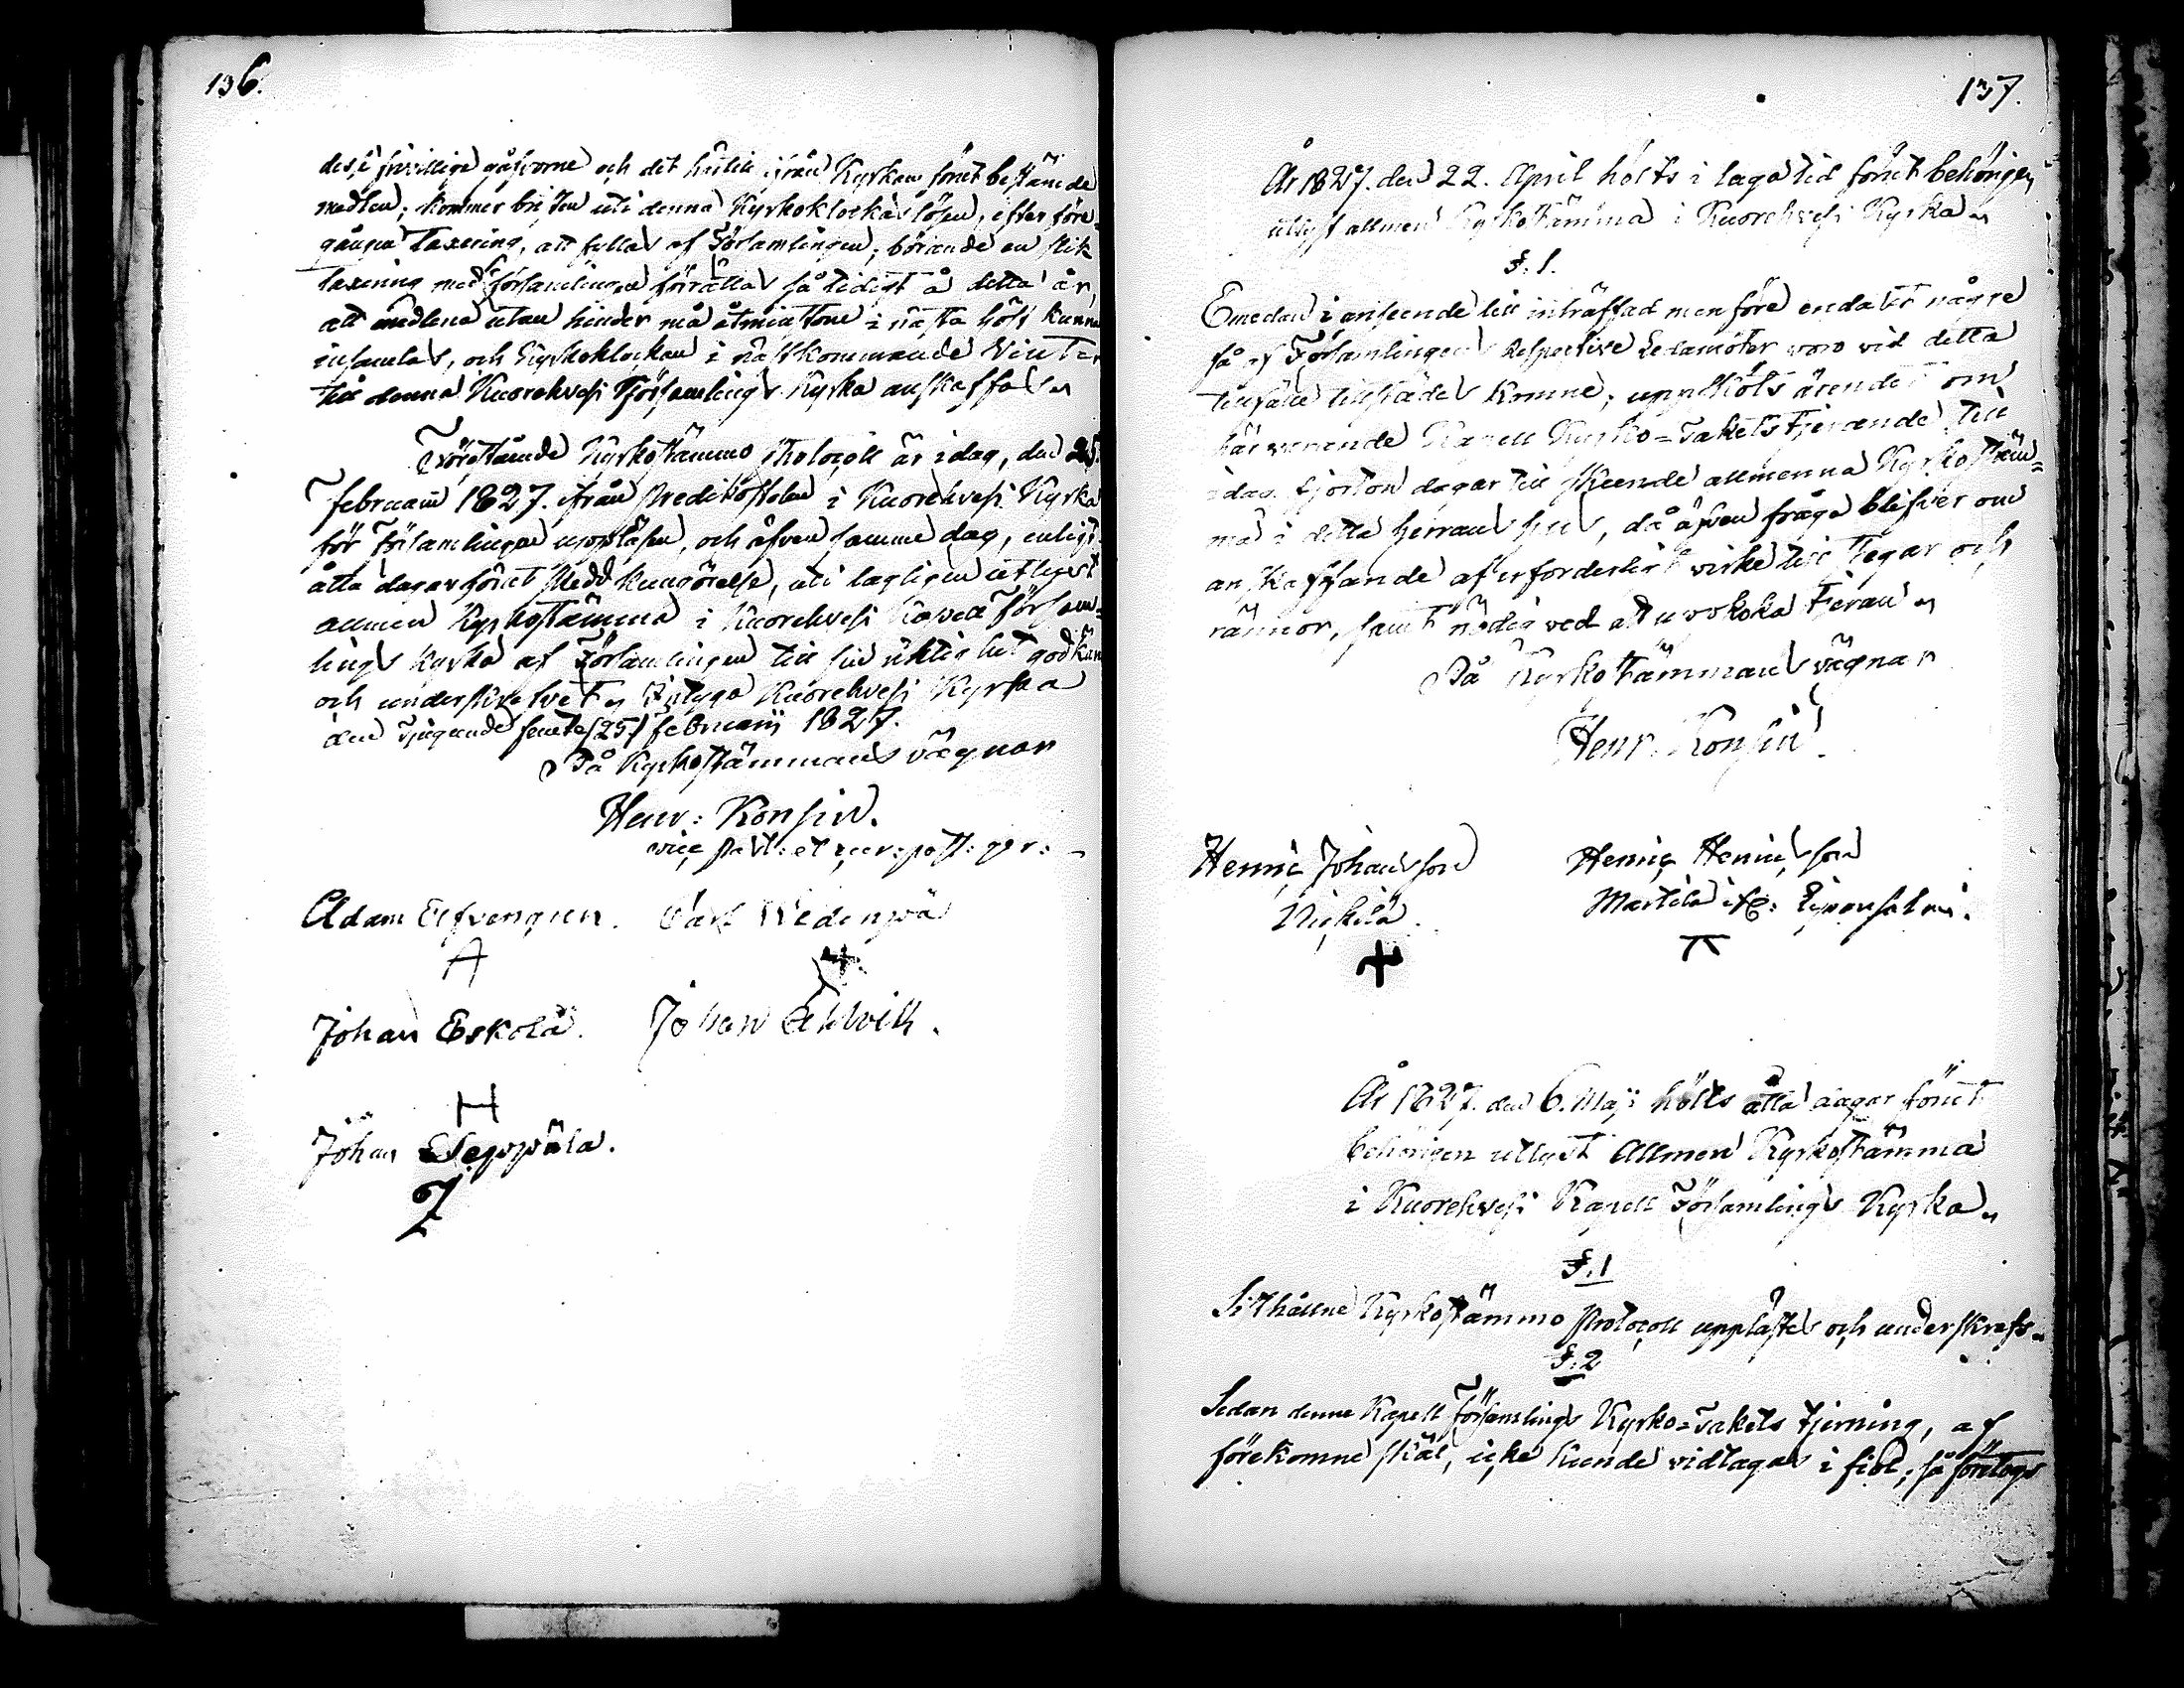 136.
desse frivillige gåfvorne och det härtill ifrån Kyrkan förut bestämde
medlen; kommer bristen uti denna Kyrkoklockas lösen, efter före-
gången taxering, att fyllas af Församlingen; börande en slik
taxering med församlingen förrättas så tidigt å detta år,
att medlena utan hinder må åtminstone i nästa höst kunna
insamlas, och Kyrkoklockan i nästkommande Vinter
till denna Kuorehvesi Församlings Kyrka anskaffas.
Förestående Kyrkostämmo Protocoll är i dag, den 25.
Februarii 1827. ifrån Predikostolen i Kuorehvesi Kyrka
för Församlingen uppläsen, och äfven samme dag, enligt
åtta dagar förut skedd kungörelse, uti lagligen utlyst
allmen Kyrkostämma i Kuorehvesi Kapell Försam-
lings Kyrka af Församlingen till sin riktighet godkän
och underskrefvet, Intyga Kuorehvesi Kyrka
den Tjugunde femte (25) Februarii 1827.
På Kyrkostämmans vägnar
Henr: Konsin.
vice past:
Adam Elfvengren. Carl Wedenpää
A
Johan Eskola. Johan Ahlvik.
H
Johan Seppälä.
137.
År 1827. den 22. April hölts i laga tid förut behörigen
utlyst allmen Kyrkostämma i Kuorehvesi Kyrka
§. 1.
Emedan i anseende till inträffad menföre endast några
få af Församlingens Respective Ledamöter voro vid detta
tillfälle tillstädes komne; uppsköts ärendet om
härvarande Kapell Kyrko=Takets tjerande till
i dag fjorton dagar till skeende allmenna Kyrkostäm=
ma i detta herrans hus, då äfven fråga blifver om
anskaffande af erforderligt virke till stegar och
rännor, samt nödig ved att uppkoka tjeran
På Kyrkostämmans vägnar
Henr. Konsin.
Henric Johansson Henric Henricsson
Nickilä. Martila
År 1827. den 6. Maji hölts åtta dagar förut
behörigen utlyst Allmen Kyrkostämma
i Kuorehvesi Kapell Församlings Kyrka
§. 1
Sist hållne Kyrkostämmo Protocoll upplästes och underskrefs.
§. 2
Sedan denne Kapell Församlings Kyrko=Takets tjerning, af
förekomne skäl, icke kunde vidtagas i fjol, så företogs